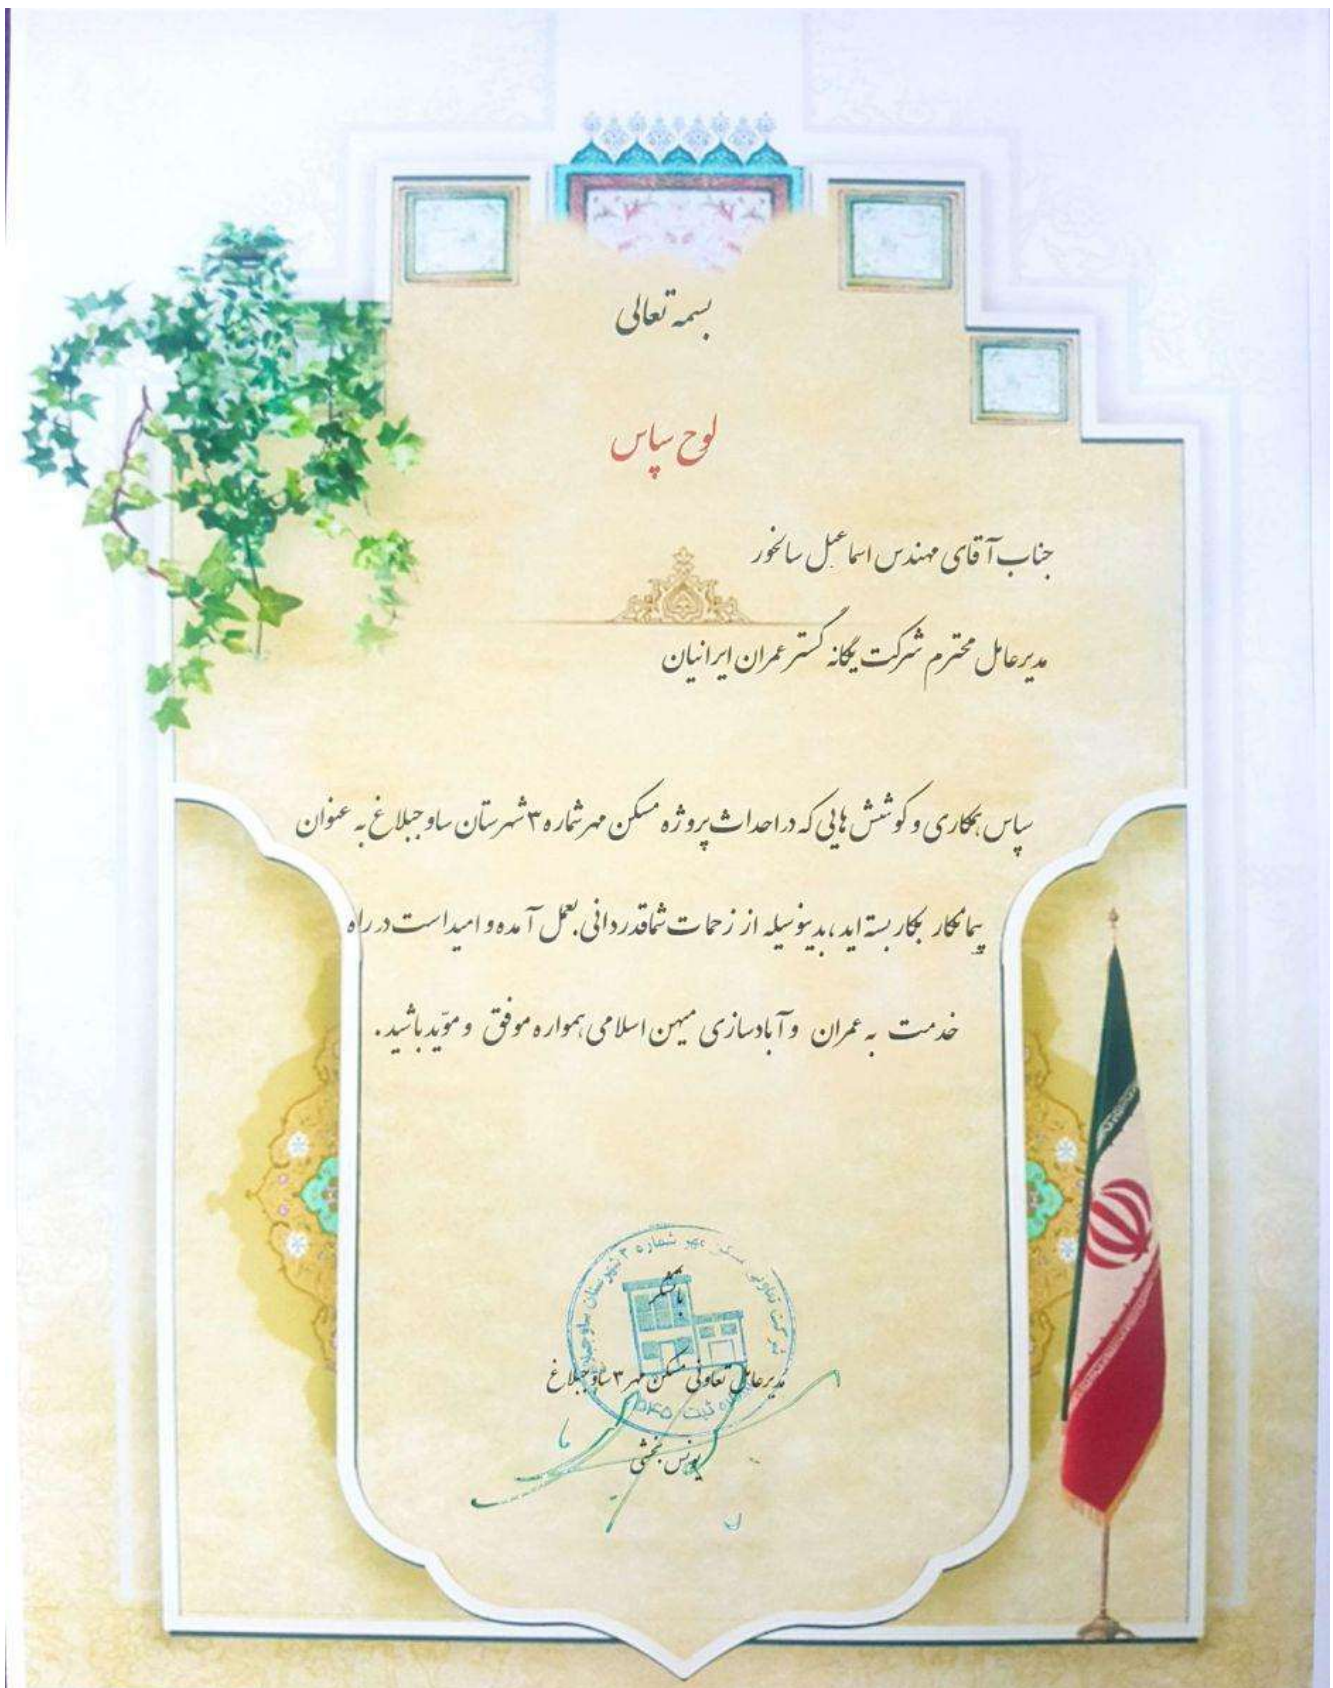 بسمه تعالی
لوح سپاس
جناب آقای مهندس اسماعیل سالخور
مدیرعامل محترم شرکت یگانه گستر عمران ایرانیان
سپاس همکاری و کوشش هایی که در احداث پروژه مسکن مهر شماره ۳ شهرستان ساوجبلاغ به عنوان
پیمانکار بکار بسته اید، بدینوسیله از زحمات شما قدردانی بعمل آمده و امید است در راه
خدمت به عمران و آبادسازی میهن اسلامی همواره موفق و موّید باشید.
شرکت تعاونی مسکن مهر شماره ۳ شهرستان ساوجبلاغ
باتشکر
مدیرعامل تعاونی مسکن مهر ۳ ساوجبلاغ
ثبت
یونس بخشی